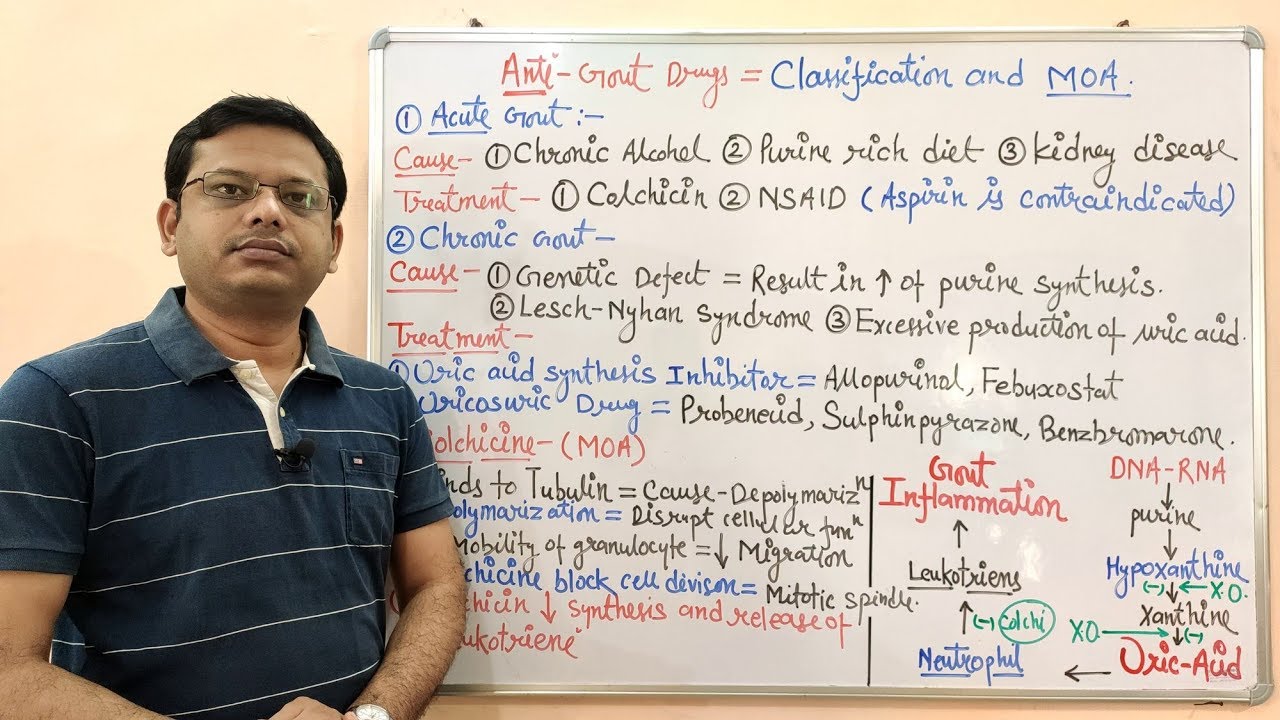 Anti-Gout Drugs = Classification and MOA.
① Acute Gout :-
Cause- ① Chronic Alcohel ② Purine rich diet ③ Kidney disease
Treatment- ① Colchicin ② NSAID (Aspirin is contraindicated)
② Chronic Gout-
Cause- ① Genetic Defect = Result in ↑ of purine synthesis.
② Lesch-Nyhan Syndrome ③ Excessive production of uric acid.
Treatment-
① Uric acid synthesis Inhibitor = Allopurinol, Febuxostat
Uricosuric Drug = Probenecid, Sulphinpyrazone, Benzbromarone.
olchicine- (MOA)
inds to Tubulin = Cause-Depolymarizⁿ
olymarization = Disrupt cellular funⁿ
Mobility of granulocyte = ↓ Migration
chicine block cell devison = Mitotic spindle.
lchicin ↓ synthesis and release of
eukotriene
Gout
Inflammation
↑
Leukotriens
↑ (-) Colchi
Neutrophil
←
DNA-RNA
↓
purine
↓
Hypoxanthine
(-) ↓ ← X.O.
Xanthine
XO → ↓ (-)
Uric-Acid